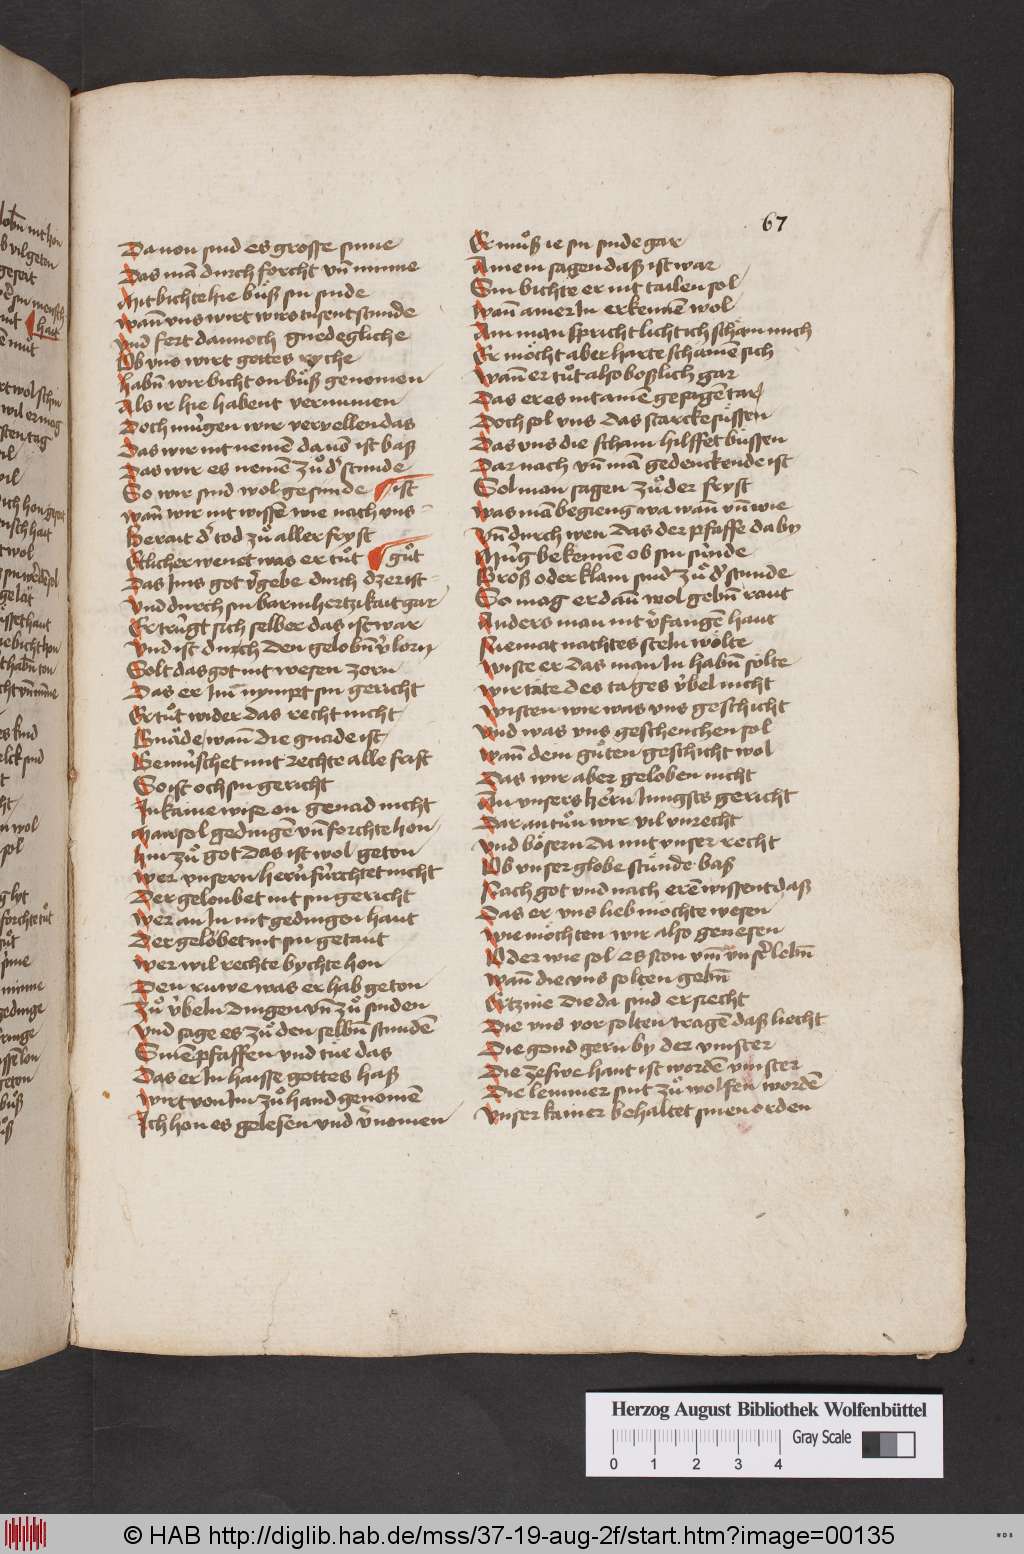 67
Da von sind es grosse sinne
Das mā durch forcht vn̄ minne
Mit bichte hie bůß sin sinde
wan̄ vns wirt wirs tusent stunde
vnd fert dannoch gnedegliche
Ob vns wirt gottes ryche
habn̄ wir bicht on bůß genomen
Als ir hie habent vernumen
Doch mu̍gen wir vervellen das
Das wir nit nemē da uō ist baß
Das wir es nemē zů d' stunde
So wir sind wol gesunde ist
wan̄ wir nit wissē wie nach vns
Berait d' tod zů aller fryst
Etlicher wenet was er tůt gůt
Das Jms got v'gebe durch
vnd durch sin barmhertzikait gar
Er tru̍gt sich selber das ist war
vnd ist durch den gelobn̄ v'lorn
Solt das got nit wesen zorn
Das er Jm̄ nympt sin gericht
Er tůt wider das recht nicht
Gnäde wan̄ die gnade ist
Gemu̍schet mit rechte alle frist
So ist och sin gericht
Jn kaine wise on genad nicht
man sol gedingē vn̄ forchte hon
hin zů got das ist wol geton
wer vnsern hern̄ fu̍rchtet nicht
Der geloubet nit sin gericht
wer an Jn nit gedingen haut
Der gelöbet nit sin getaut
wer wil rechte bychte hon
Den ruwe was er hab geton
Zů v'beln dingen vn̄ zů sinden
vnd sage es zů den selbn̄ stundē
Sinē pfaffen vnd tüe das
Das er Jn haisse gottes haß
wirt von Jm zů hand genomē
Jch hon es gelesen vnd v'nomen
Er můß ie sin sinde gar
Ainem sagen daß ist war
Sin bichte er nit tailen sol
wan̄ ainer Jn erkennē wol
Ain man spricht licht ich schäm mich
Er möcht aber harte schamē sich
wan̄ er tůt also boßlich gar
Das er es nit aine gesagē tar
Doch sol vns das starcke sissen
Das vns die scham hilffet bu̍ssen
Dar nach vn̄ mā gedenckende ist
Sol man sagen zů der fryst
was mā begieng wa wan̄ vn̄ wie
vn̄ durch wen das der pfaffe da by
Mu̍g bekennē ob sin su̍nde
Groß oder klain sind zů d' stunde
So mag er dan̄ wol gebn̄ raut
Anders man nit v'fangē haut
Niemat nachtes steln wölte
wiste er das man Jn habn̄ sölte
wir täte des tages v'bel nicht
wisten wir was vns geschicht
vnd was vns geschenchen sol
wan̄ dem gůten geschicht wol
Das wir aber geloben nicht
An vnsers hern̄ Jungsts gericht
Dar an tůn wir vil vnrecht
vnd bösern da mit vnser recht
Ob vnser globe stu̍nde baß
Nach got vnd nach erē wissent daß
Das er vns lieb möchte wesen
wie möchten wir also genesen
Oder wie sol es ston vm̄ vnsr̄ lebn̄
wan̄ die vns solten gebn̄
Ertznie die da sind ersiecht
Die vns vor solten tragē daß liecht
Die gond gern by der vinster
Die zeswe hant ist wordē vinster
Die lemmer sint zů wolfen wordē
vnser kamer behaltet sinen orden
Herzog August Bibliothek Wolfenbüttel
Gray Scale
0 1 2 3 4
© HAB http://diglib.hab.de/mss/37-19-aug-2f/start.htm?image=00135
WDB